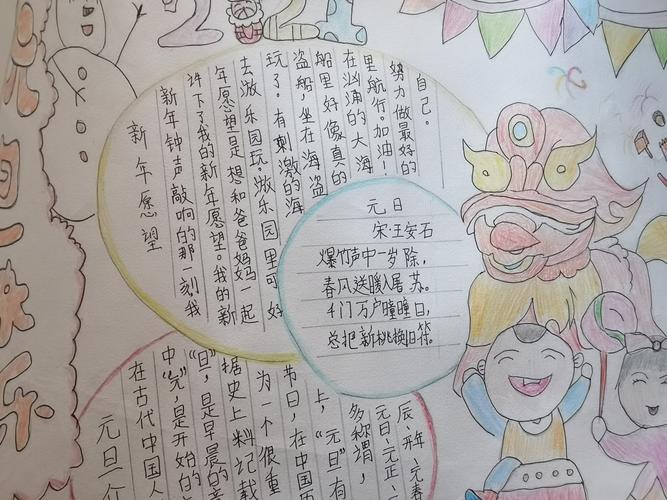 元旦快乐
2021
新年愿望
新年钟声敲响的那一刻我
许下了我的新年愿望。我的新
年愿望是想和爸爸妈妈一起
去游乐园玩。游乐园里可好
玩了。有刺激的海
盗船,坐在海盗
船里好像真的
在汹涌的大海
里航行。加油!
努力做最好的
自己。
元日
宋:王安石
爆竹声中一岁除,
春风送暖入屠苏。
千门万户瞳瞳日,
总把新桃换旧符。
元旦介
在古代中国人
中“元”,是开始的
“旦”,是早晨的
据史上料记载
为一个很重
节日,在中国
上,“元旦”有
多称谓,
元日、元正、
辰、开年、元春